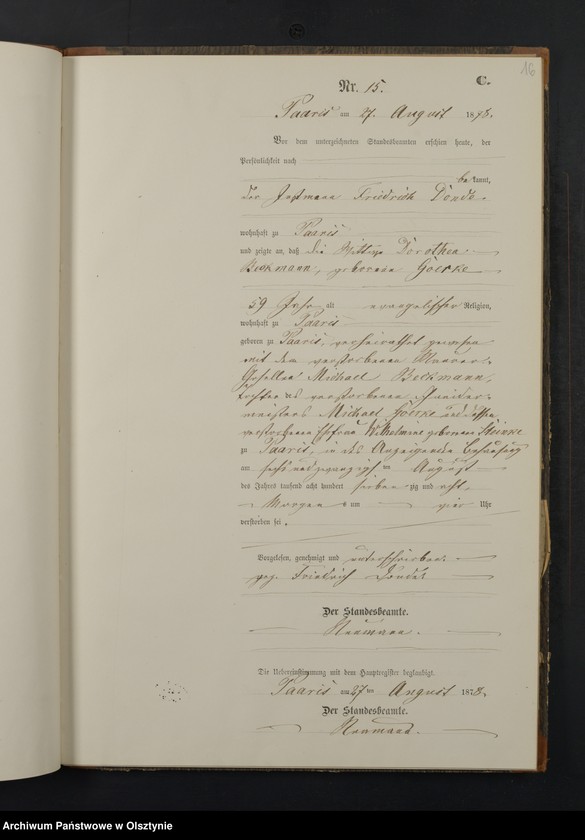 16
C.
Nr. 15.
Paaris am 27. August 1878.
Vor dem unterzeichneten Standesbeamten erschien heute, der
Persönlichkeit nach
bekannt,
der Instmann Friedrich Donde
wohnhaft zu Paaris
und zeigte an, daß die Wittwe Dorothea
Beckmann, geborene Goerke
59 Jahr alt evangelischer Religion,
wohnhaft zu Paaris
geboren zu Paaris, verheirathet gewesen
mit dem verstorbenen Maurer-
Gesellen Michael Beckmann,
Tochter des verstorbenen Schneider-
meisters Michael Goerke und dessen
verstorbenen Ehefrau Wilhelmine geborenen
zu Paaris, in des Anzeigenden Behausung
am sechs und zwanzigsten August
des Jahres tausend acht hundert siebenzig und acht,
Morgens um vier Uhr
verstorben sei.
Vorgelesen, genehmigt und unterschrieben
gez. Friedrich Donde
Der Standesbeamte.
Neumann.
Die Uebereinstimmung mit dem Hauptregister beglaubigt.
Paaris am 27ten August 1878.
Der Standesbeamte.
Neumann.
Archiwum Państwowe w Olsztynie